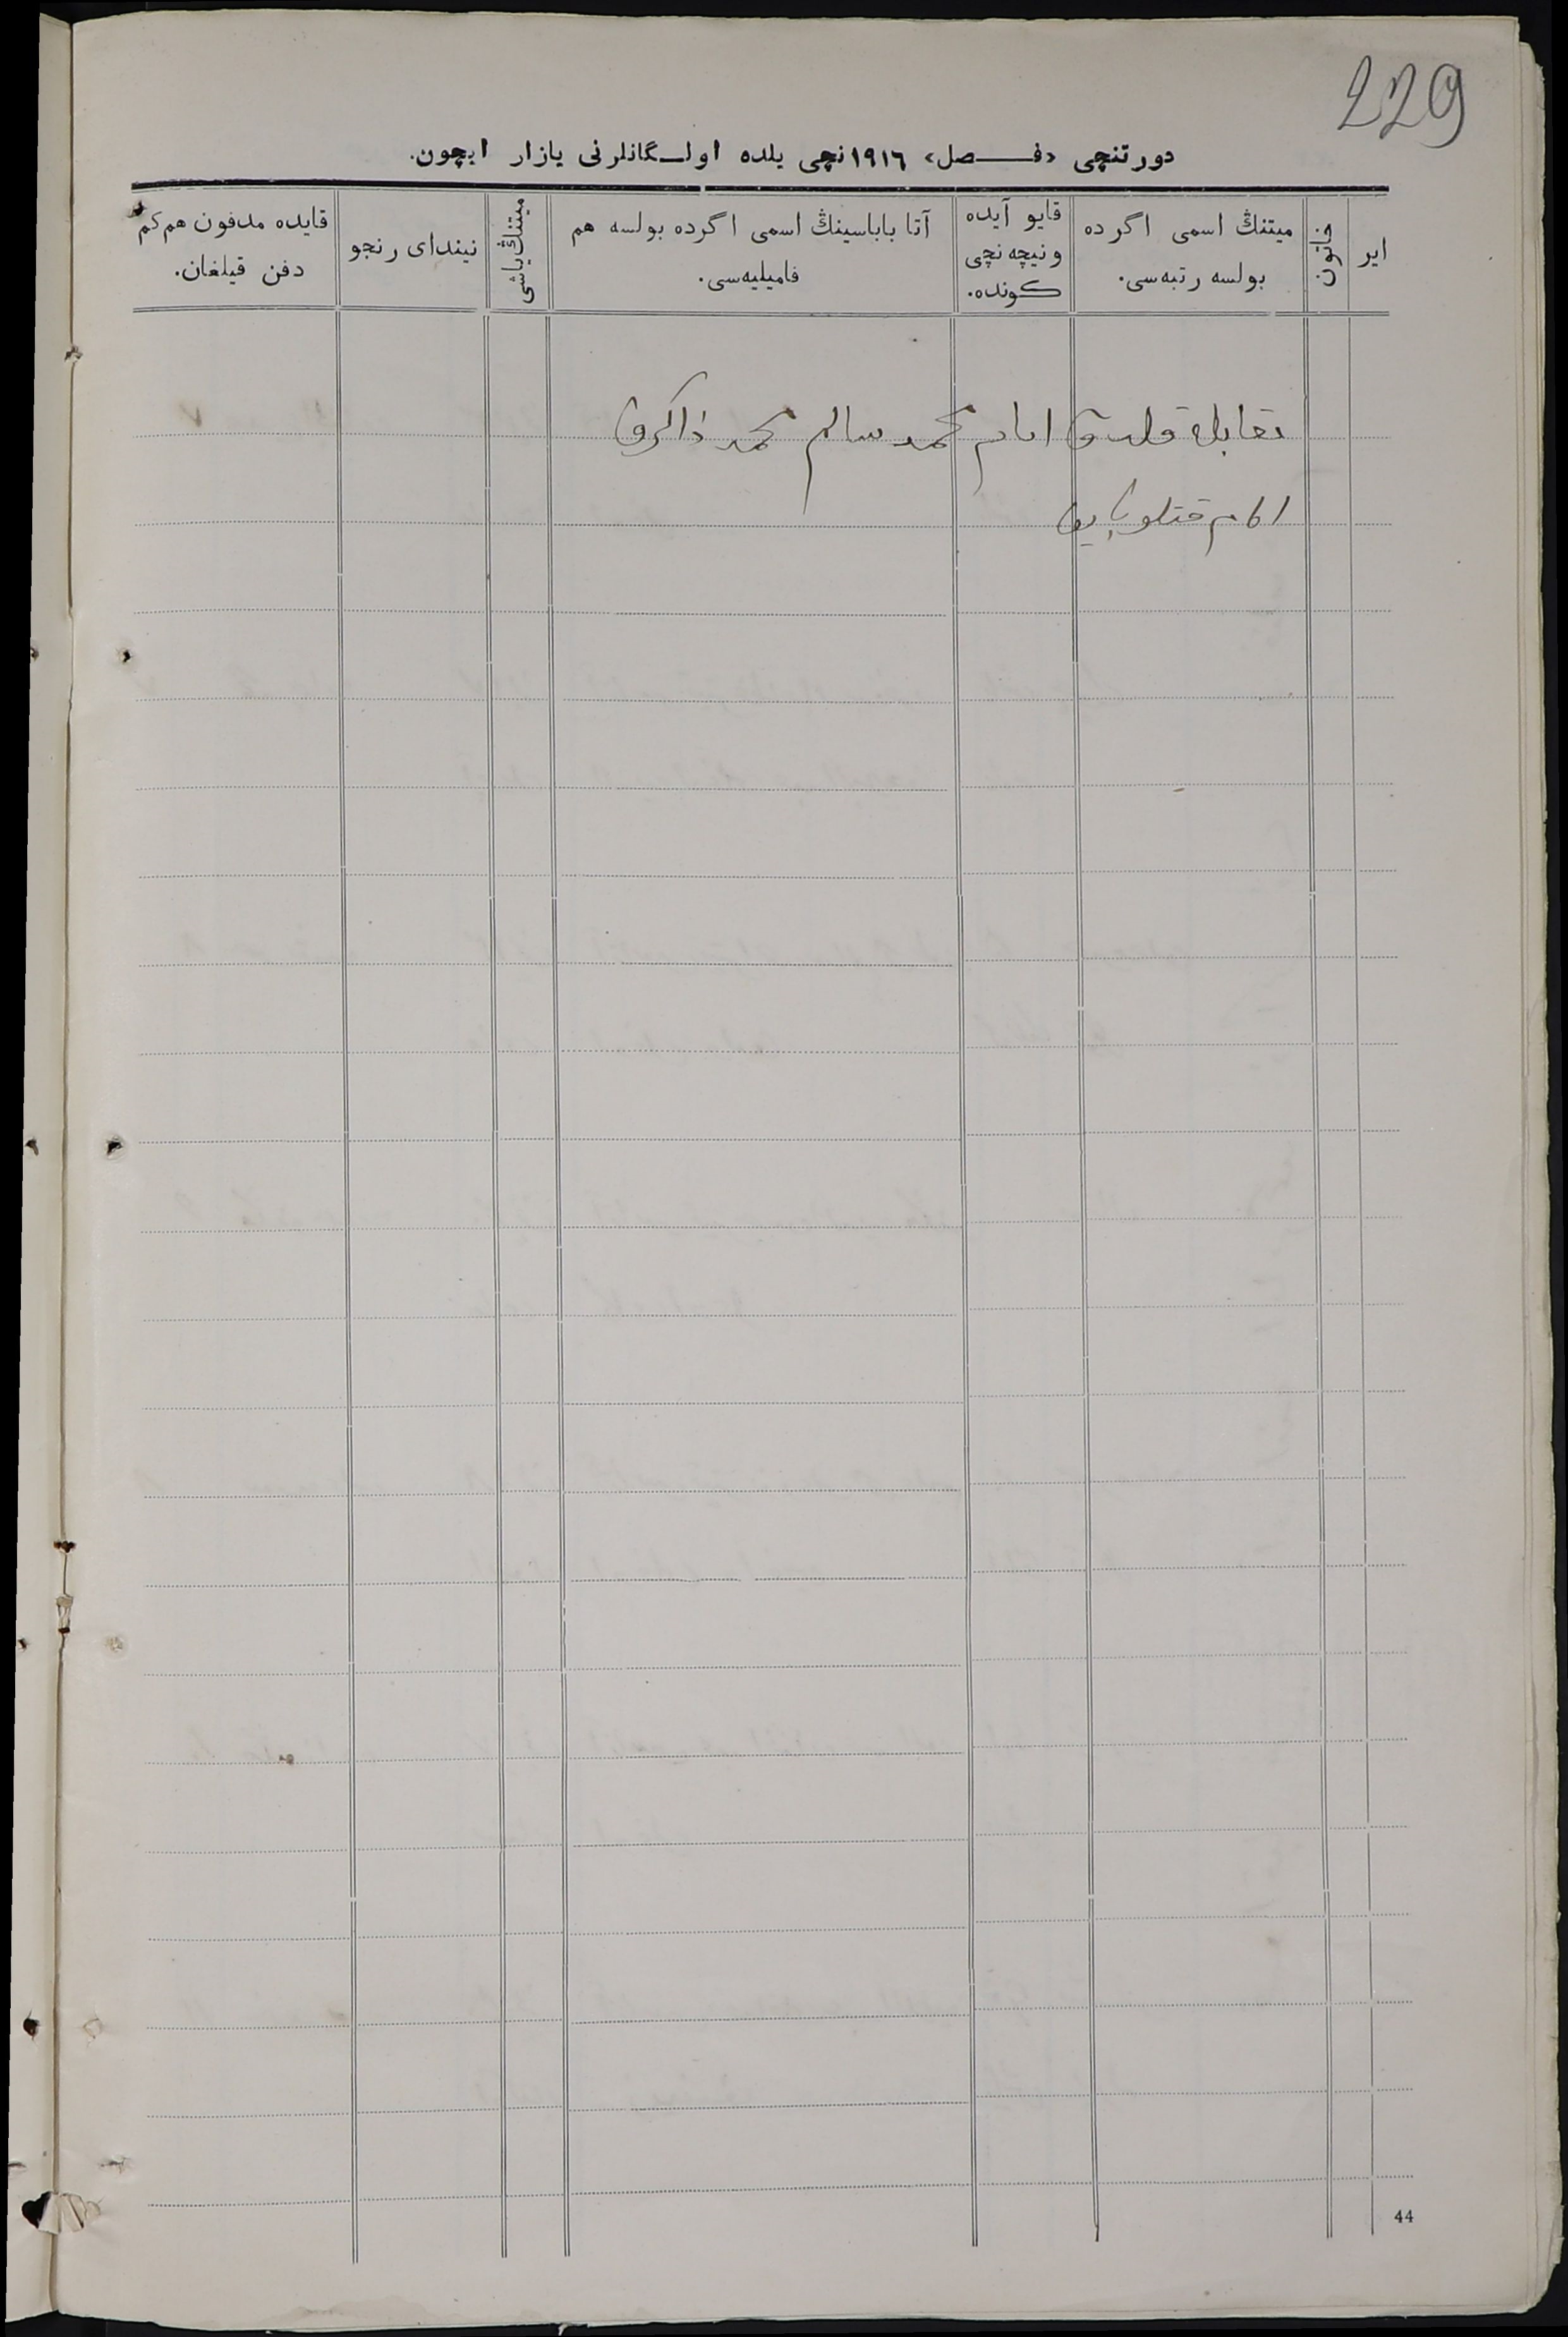 229
دورتنچی «فصل» ١٩١٦نچی يلده اولـگانلرنی يازار ايچون.
اير
خاتون
ميتنڭ اسمی اگرده
بولسه رتبه‌سی.
قايو آيده
ونيچه نچی
كونده.
آتا باباسينڭ اسمی اگرده بولسه هم
فاميليه‌سی.
ميتنڭ ياشی
نيندای رنجو
قايده مدفون هم كم
دفن قيلغان.
امام محمد سالم محمد ذاكروف
امام قتلوبايف
44